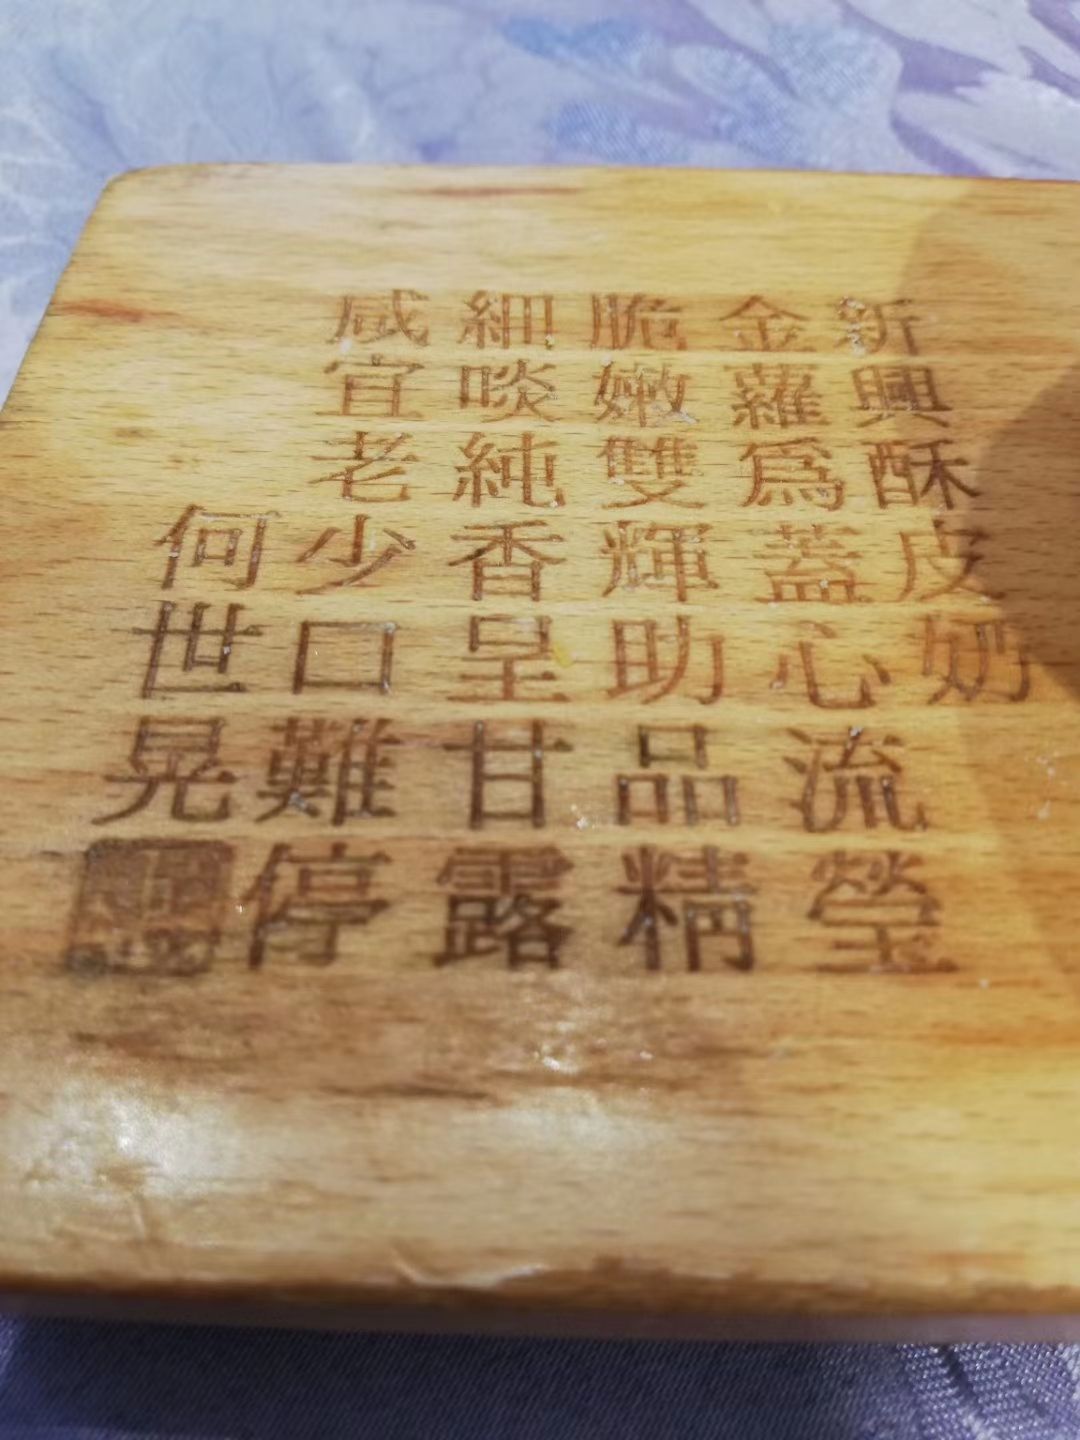 新興酥皮奶
金蘿為蓋心流瑩
脆嫩雙輝助品精
細啖純香呈甘露
咸宜老少口難停
何世晃